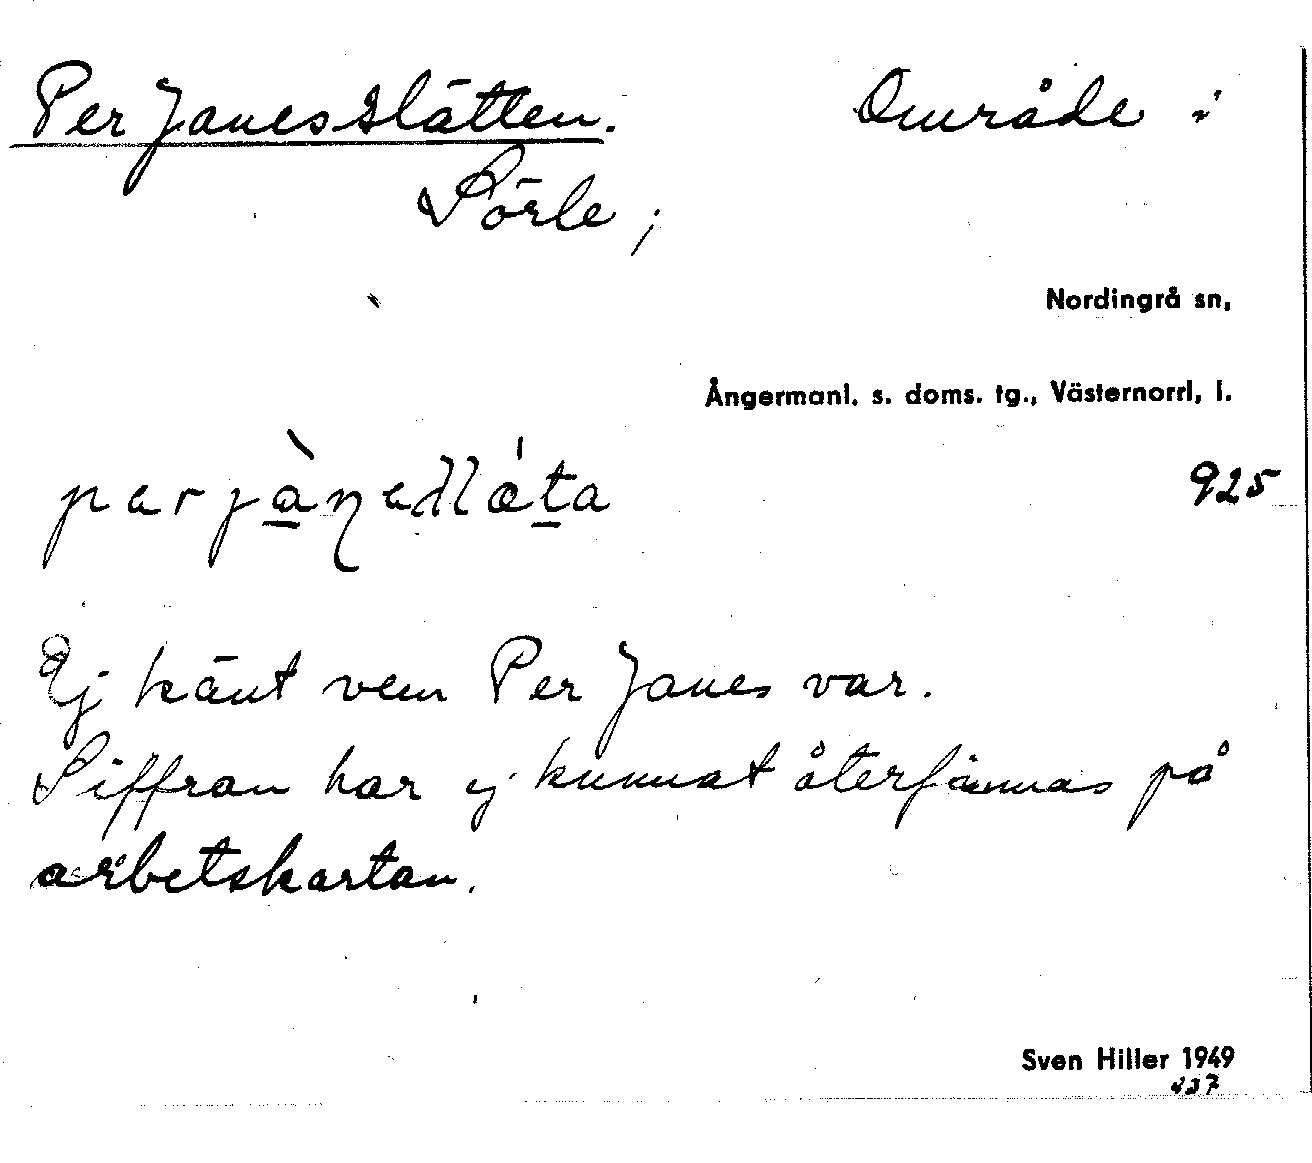 Per Janesslätten. Område i
Sörle;
Nordingrå sn,
Ångermanl. s. doms. tg., Västernorrl, l.
925
Ej känt vem Per Janes var.
Siffran har ej kunnat återfinnas på
arbetskartan.
Sven Hiller 1949